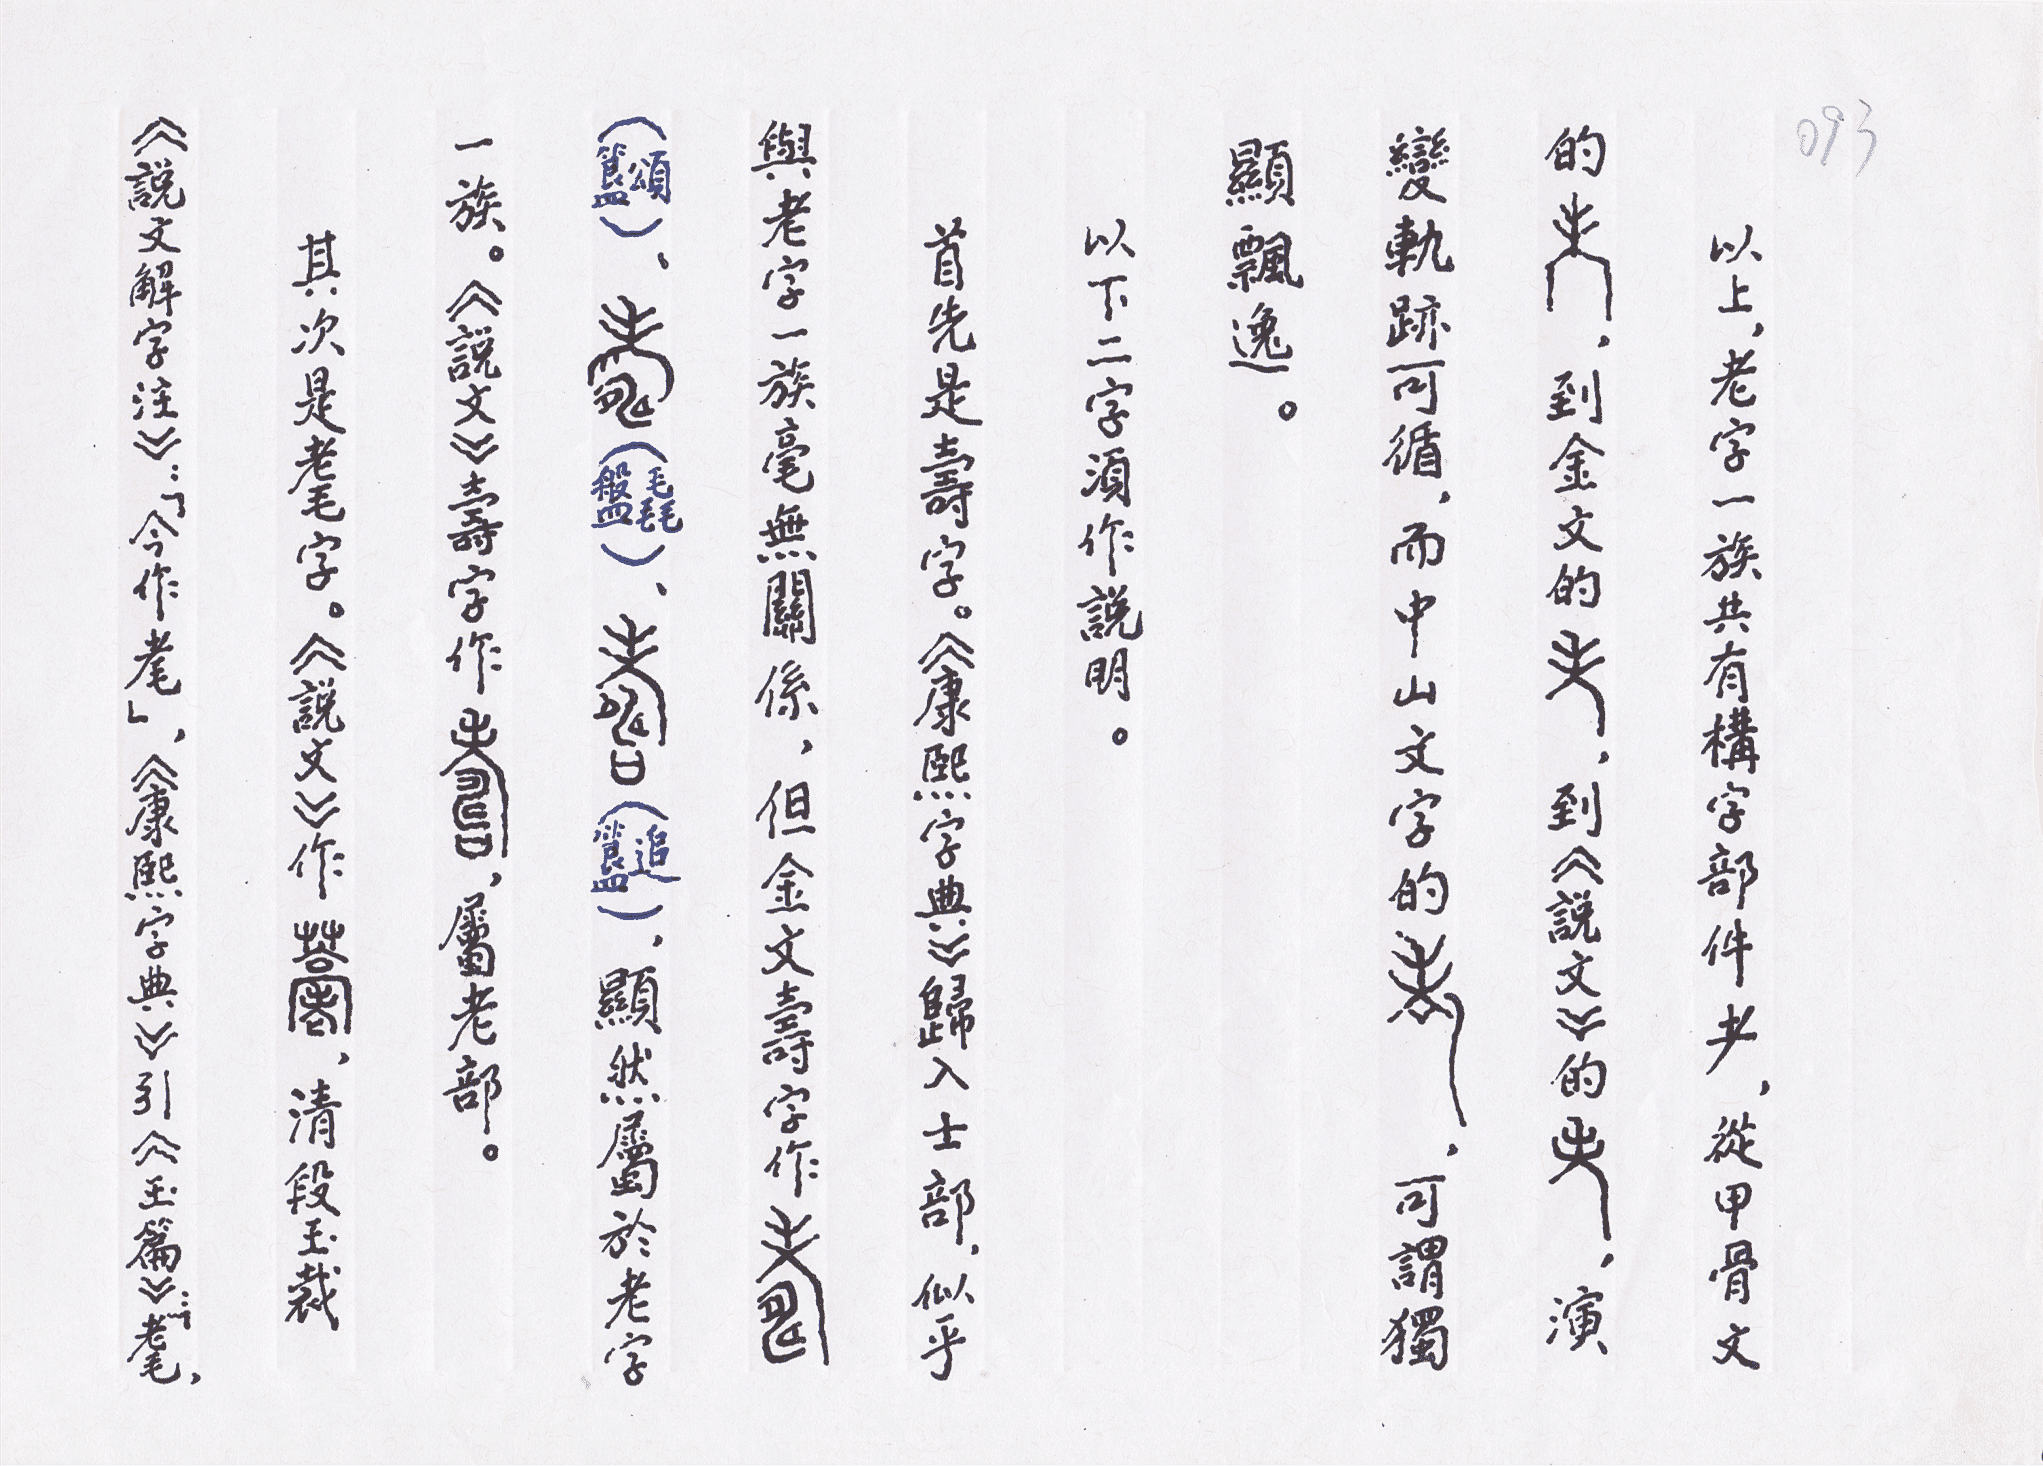 093
以上，老字一族共有構字部件耂，從甲骨文
的，到金文的，到《說文》的，演
變軌跡可循，而中山文字的，可謂獨
顯飄逸。
以下二字須作說明。
首先是壽字。《康熙字典》歸入士部，似乎
與老字一族毫無關係，但金文壽字作
（頌簋）、（毳盤）、（追簋），顯然屬於老字
一族。《說文》壽字作，屬老部。
其次是耄字。《說文》作，清段玉裁
《說文解字注》：「今作耄」，《康熙字典》引《玉篇》：「耄，